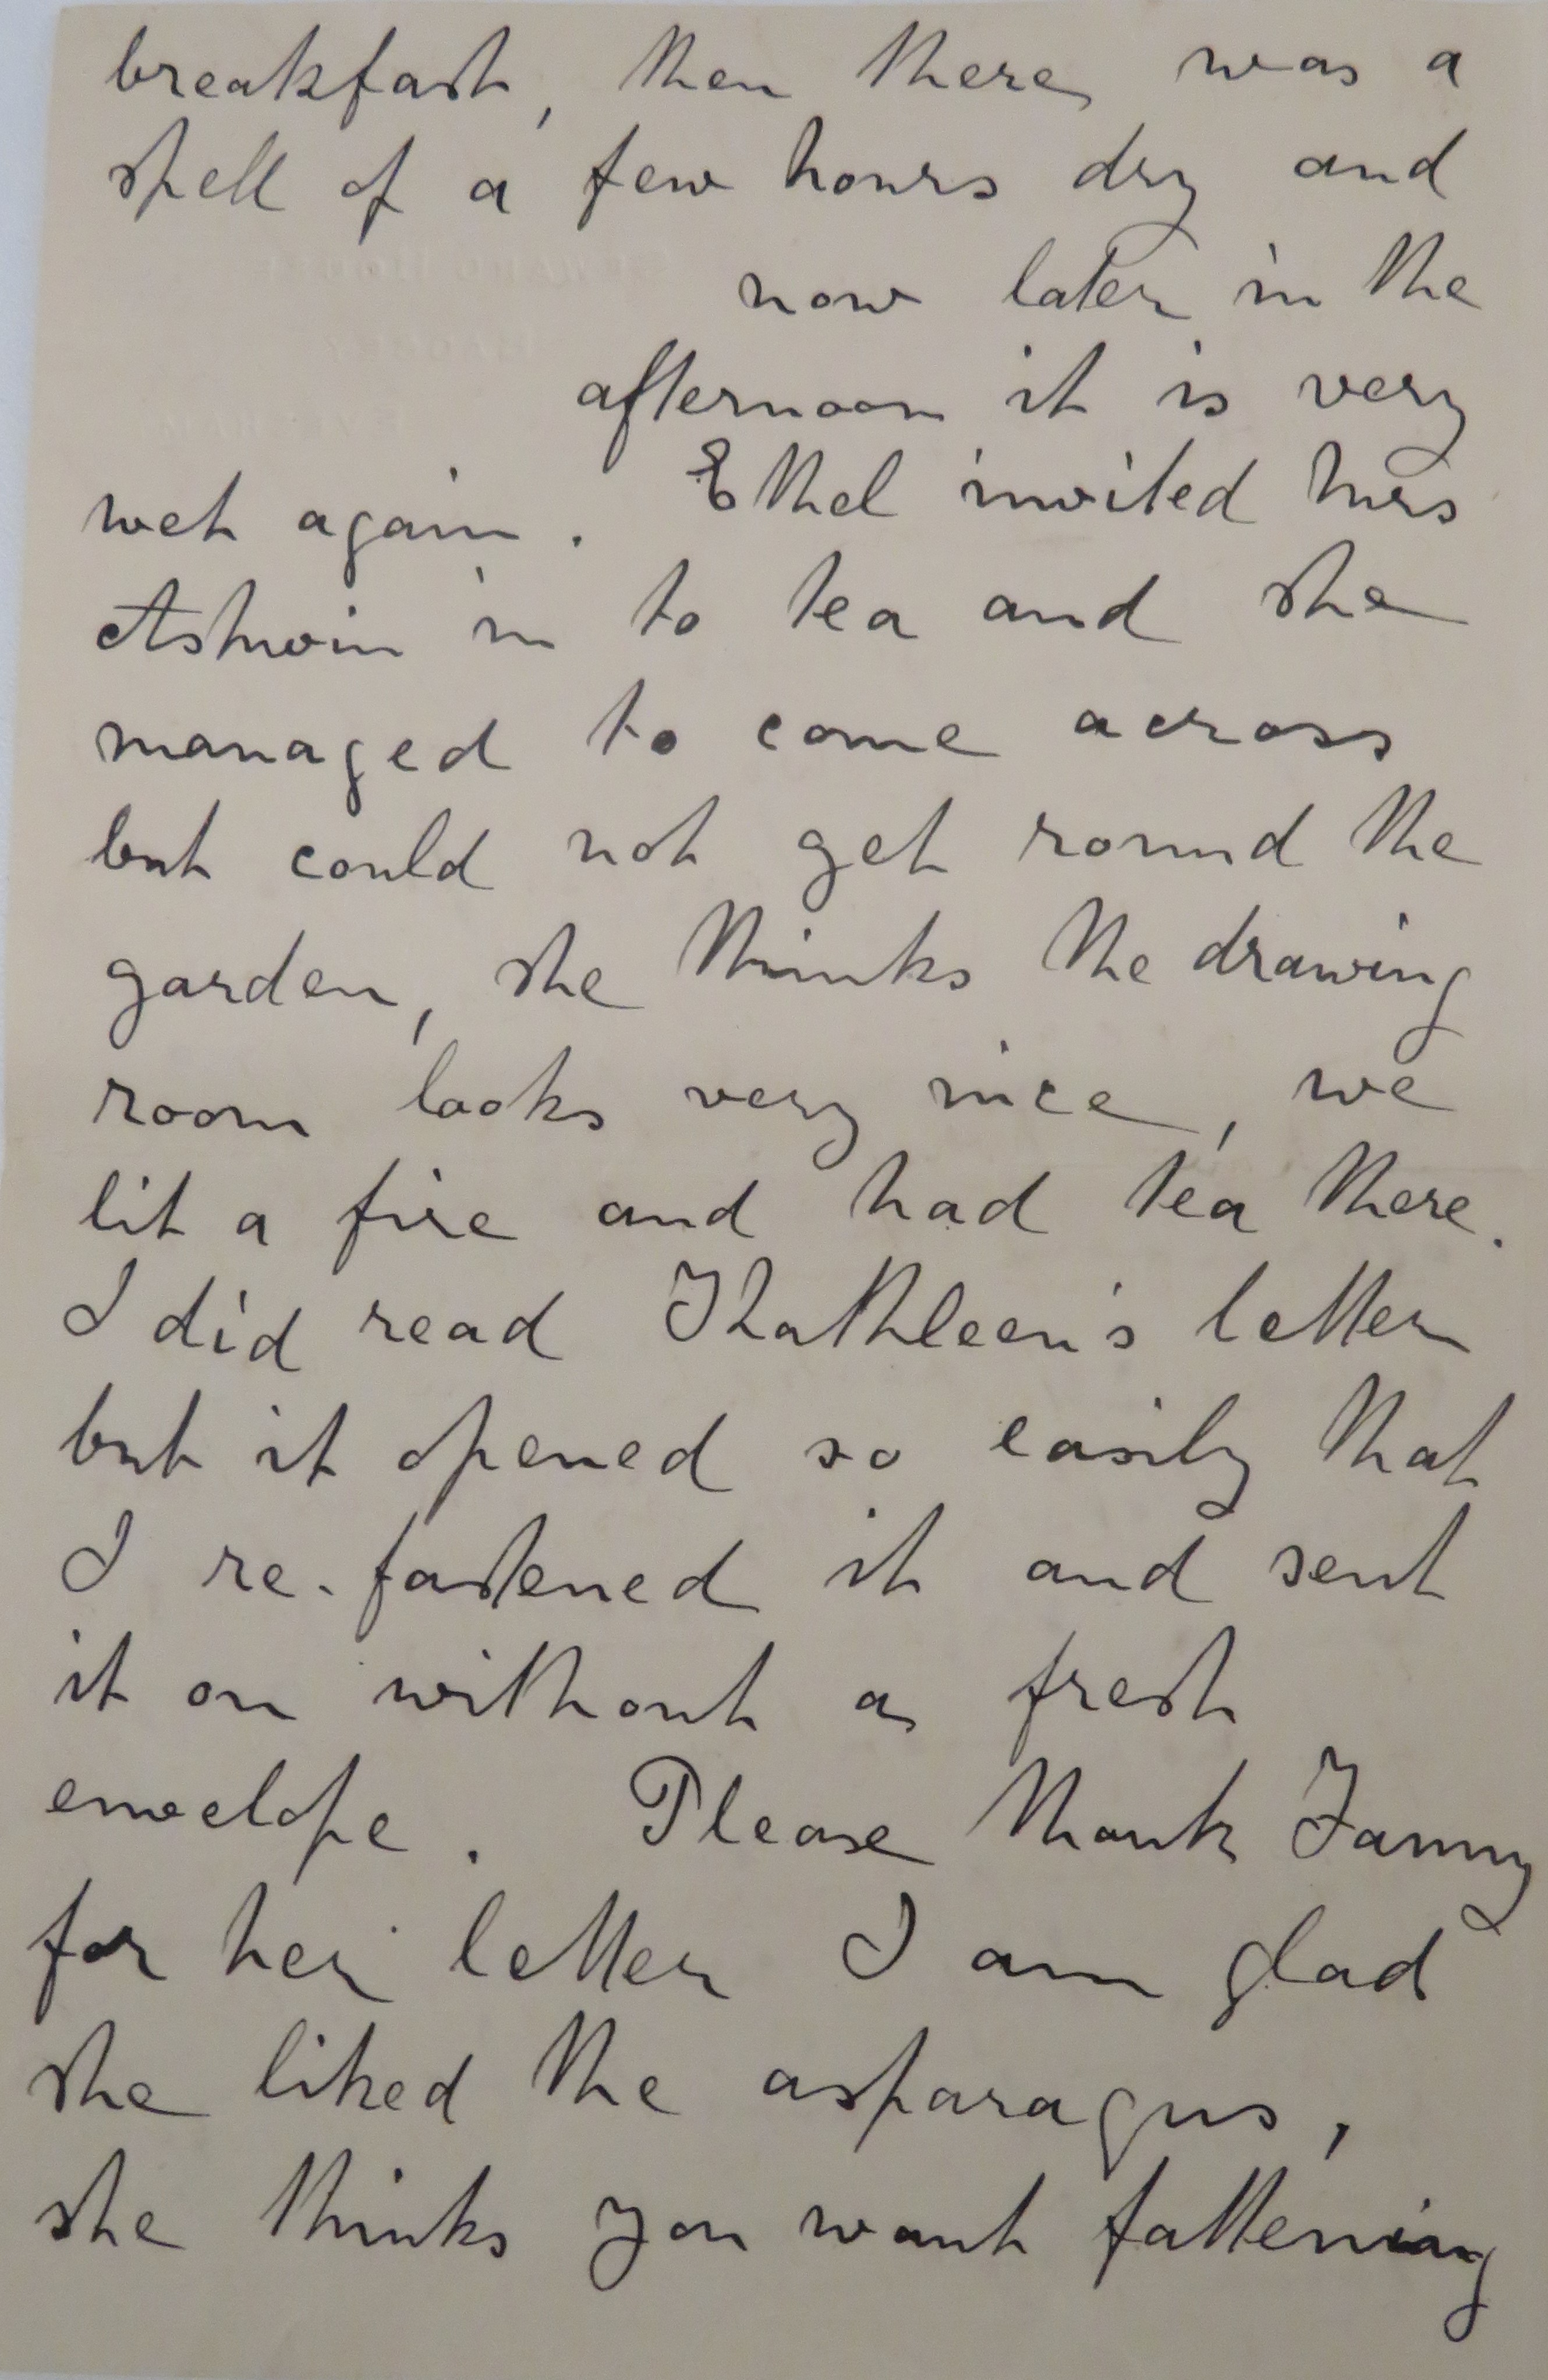 breakfast, then there was a
spell of a few hours dry and
now later in the
afternoon it is very
wet again. Ethel invited Mrs
Ashwin in to tea and she
managed to come across
but could not get round the
garden, she thinks the drawing
room looks very nice, we
lit a fire and had tea there.
I did read Kathleen's letter
but it opened so easily that
I re-fastened it and sent
it on without a fresh
envelope. Please thank Fanny
for her letter I am glad
she liked the asparagus,
she thinks you want fattening